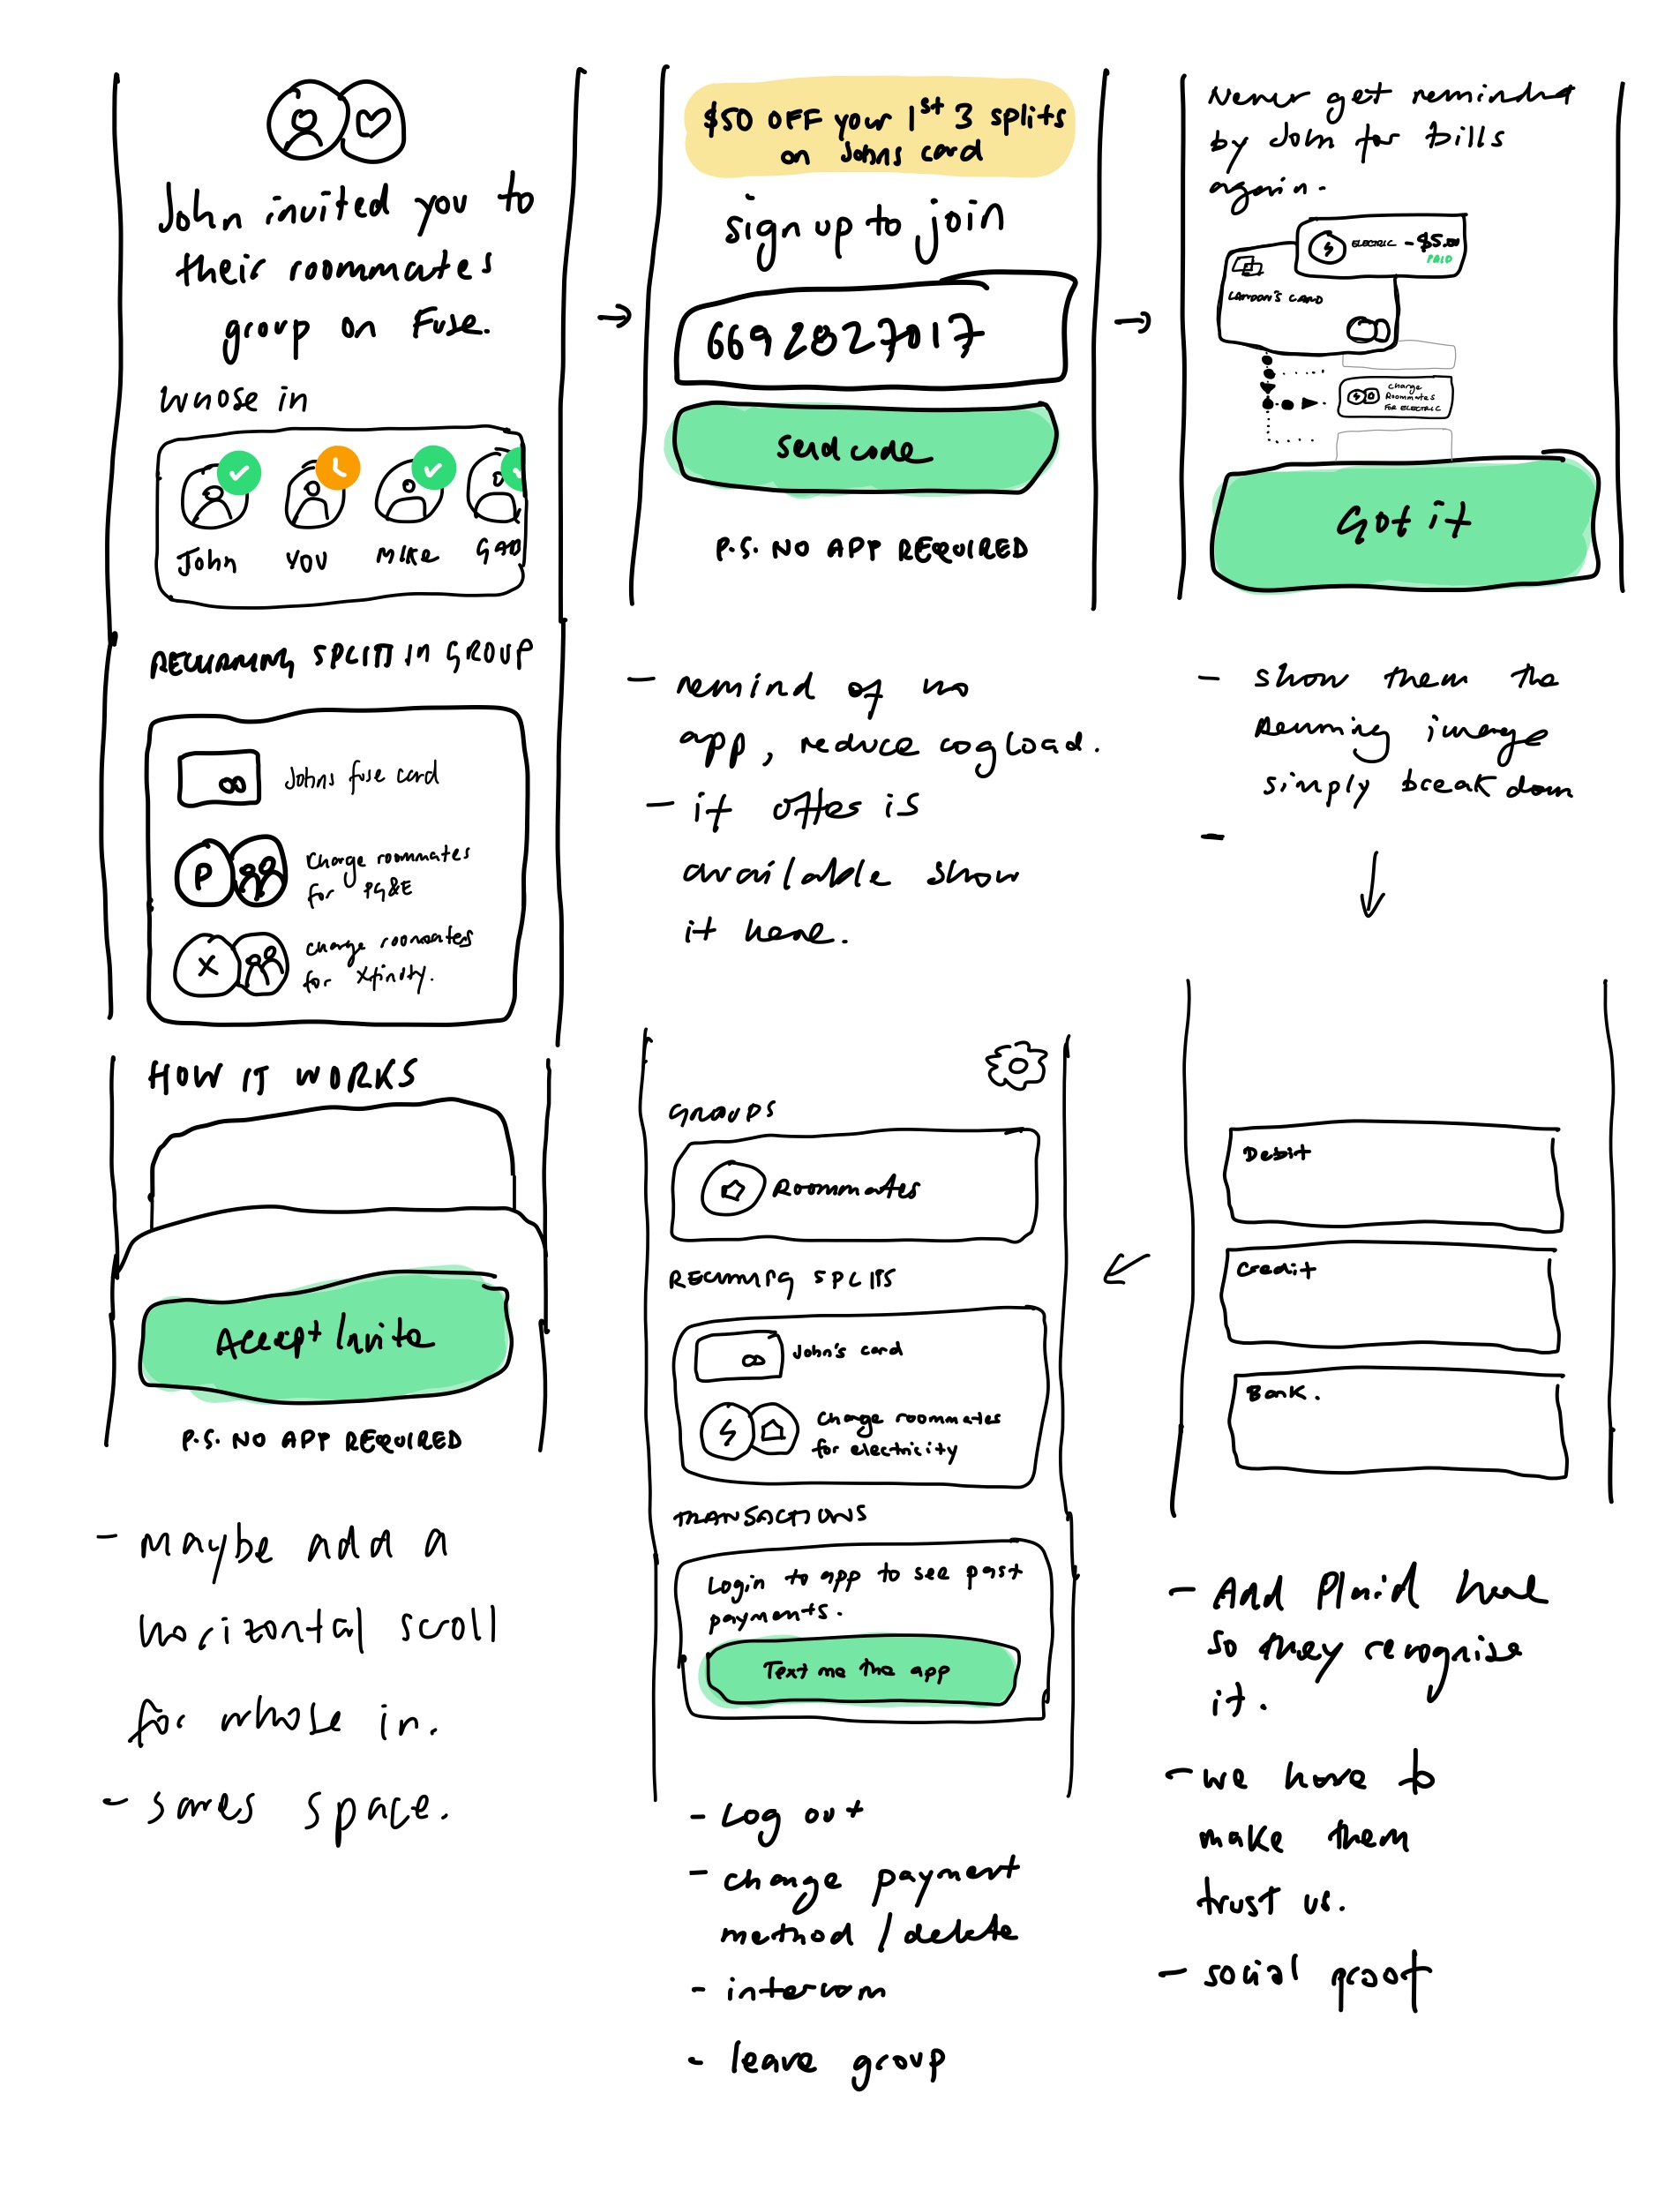 John invited you to
their roommates
group on Fuse.
whose in
John
YOU
MIKE
RECURRING SPLITS IN GROUP
Johns fuse card
P
Charge roommates
for PG&E
X
charge roommates
for Xfinity.
HOW IT WORKS
Accept Invite
P.S. NO APP REQUIRED
- Maybe add a
horizontal scroll
for whose in.
- saves space.
$50 OFF your 1st 3 splits
on Johns card
sign up to join
6692827017
Send code
P.S. NO APP REQUIRED
- remind of no
app, reduce cog load.
- if offer is
available show
it here.
Never get reminded
by John for bills
again.
ELECTRIC -$5.00
PAID
LANDON'S CARD
charge
Roommates
FOR ELECTRIC
Got it
- show them the
running image
simply breakdown
-
Debit
Credit
Bank.
- Add Plaid here
so they recognise
it.
- we have to
make them
trust us.
- social proof
GROUPS
Roommates
RECURRING SPLITS
John's card
Charge roommates
for electricity
TRANSACTIONS
Login to app to see past
payments.
Text me the app
- Log out
- change payment
method / delete
- intercom
- leave group